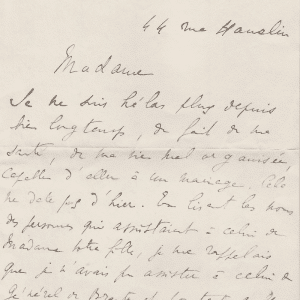 44 rue Hamelin
Madame
Je ne suis hélas plus depuis
bien longtemps, du fait de ma
santé, de ma vie mal organisée,
capable d'aller à un mariage. Cela
ne date pas d'hier. En lisant les noms
des personnes qui assistaient à celui de
Madame votre fille, je me rappelais
que je n'avais pu assister à celui du
général de